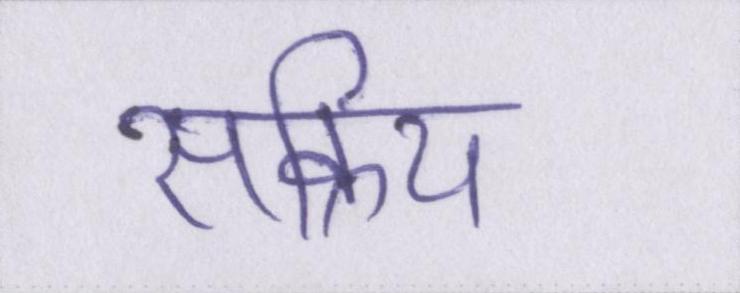 सक्रिय